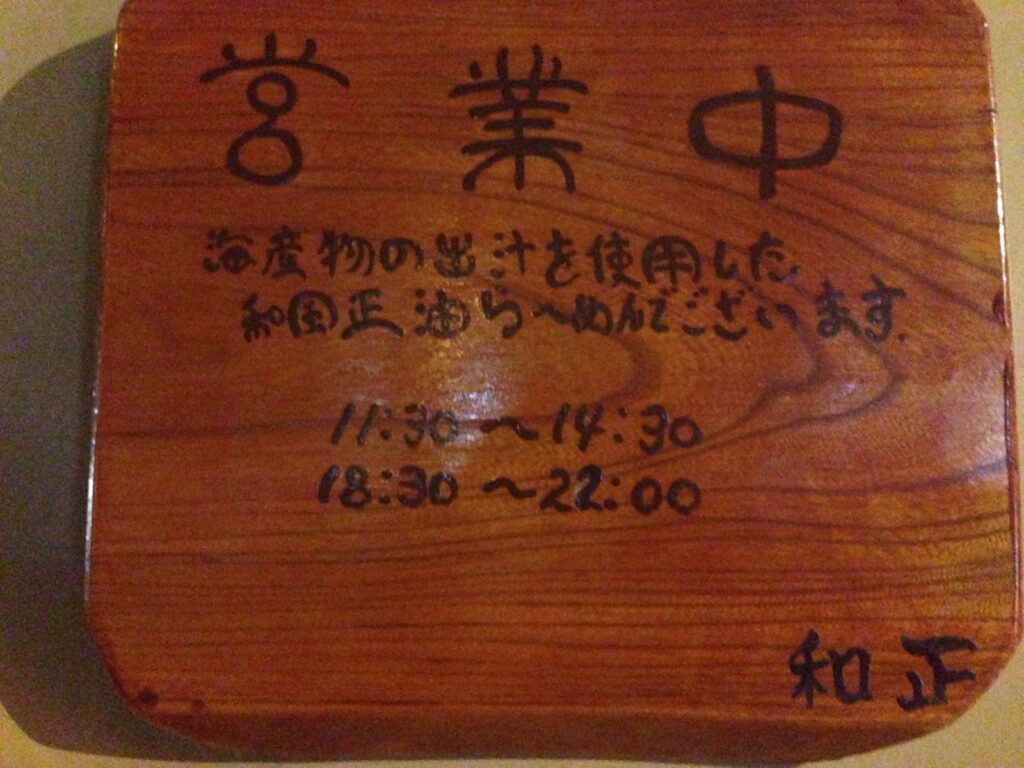 営業中
海産物の出汁を使用した
和風正油ら〜めんでございます.
11:30〜14:30
18:30〜22:00
和正